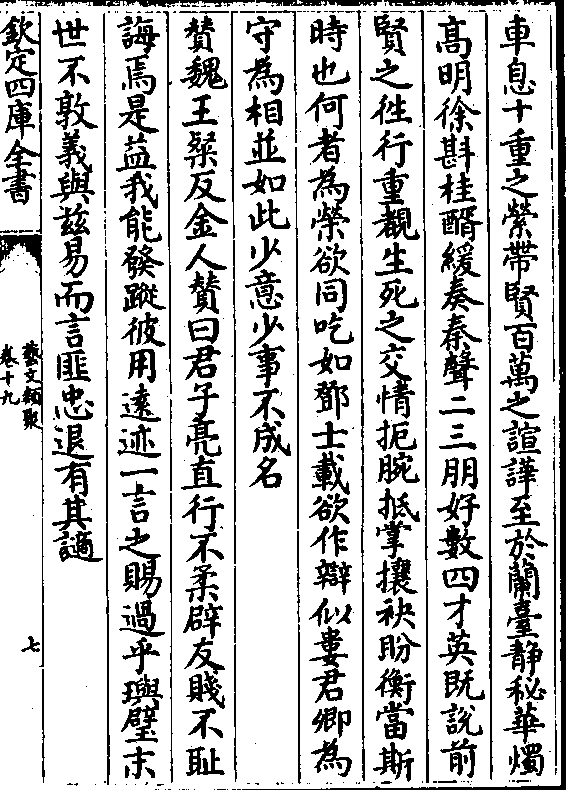 車息十重之縈帶賢百萬之諠譁至於蘭臺静秘華燭
髙明徐斟桂醑緩奏秦聲二三朋好數四才英既說前
賢之徃行重觀生死之交情扼腕抵掌攘袂盼衡當斯
時也何者為榮欲同吃如鄧士載欲作辯似婁君卿為
守為相並如此少意少事不成名
賛魏王粲反金人賛曰君子亮直行不柔辟友賤不耻
誨焉是益我能發蹤彼用逺迹一言之賜過乎璵璧末
世不敦義與兹易而言匪忠退有其謫
欽定四庫全書
藝文類聚
卷十九
七